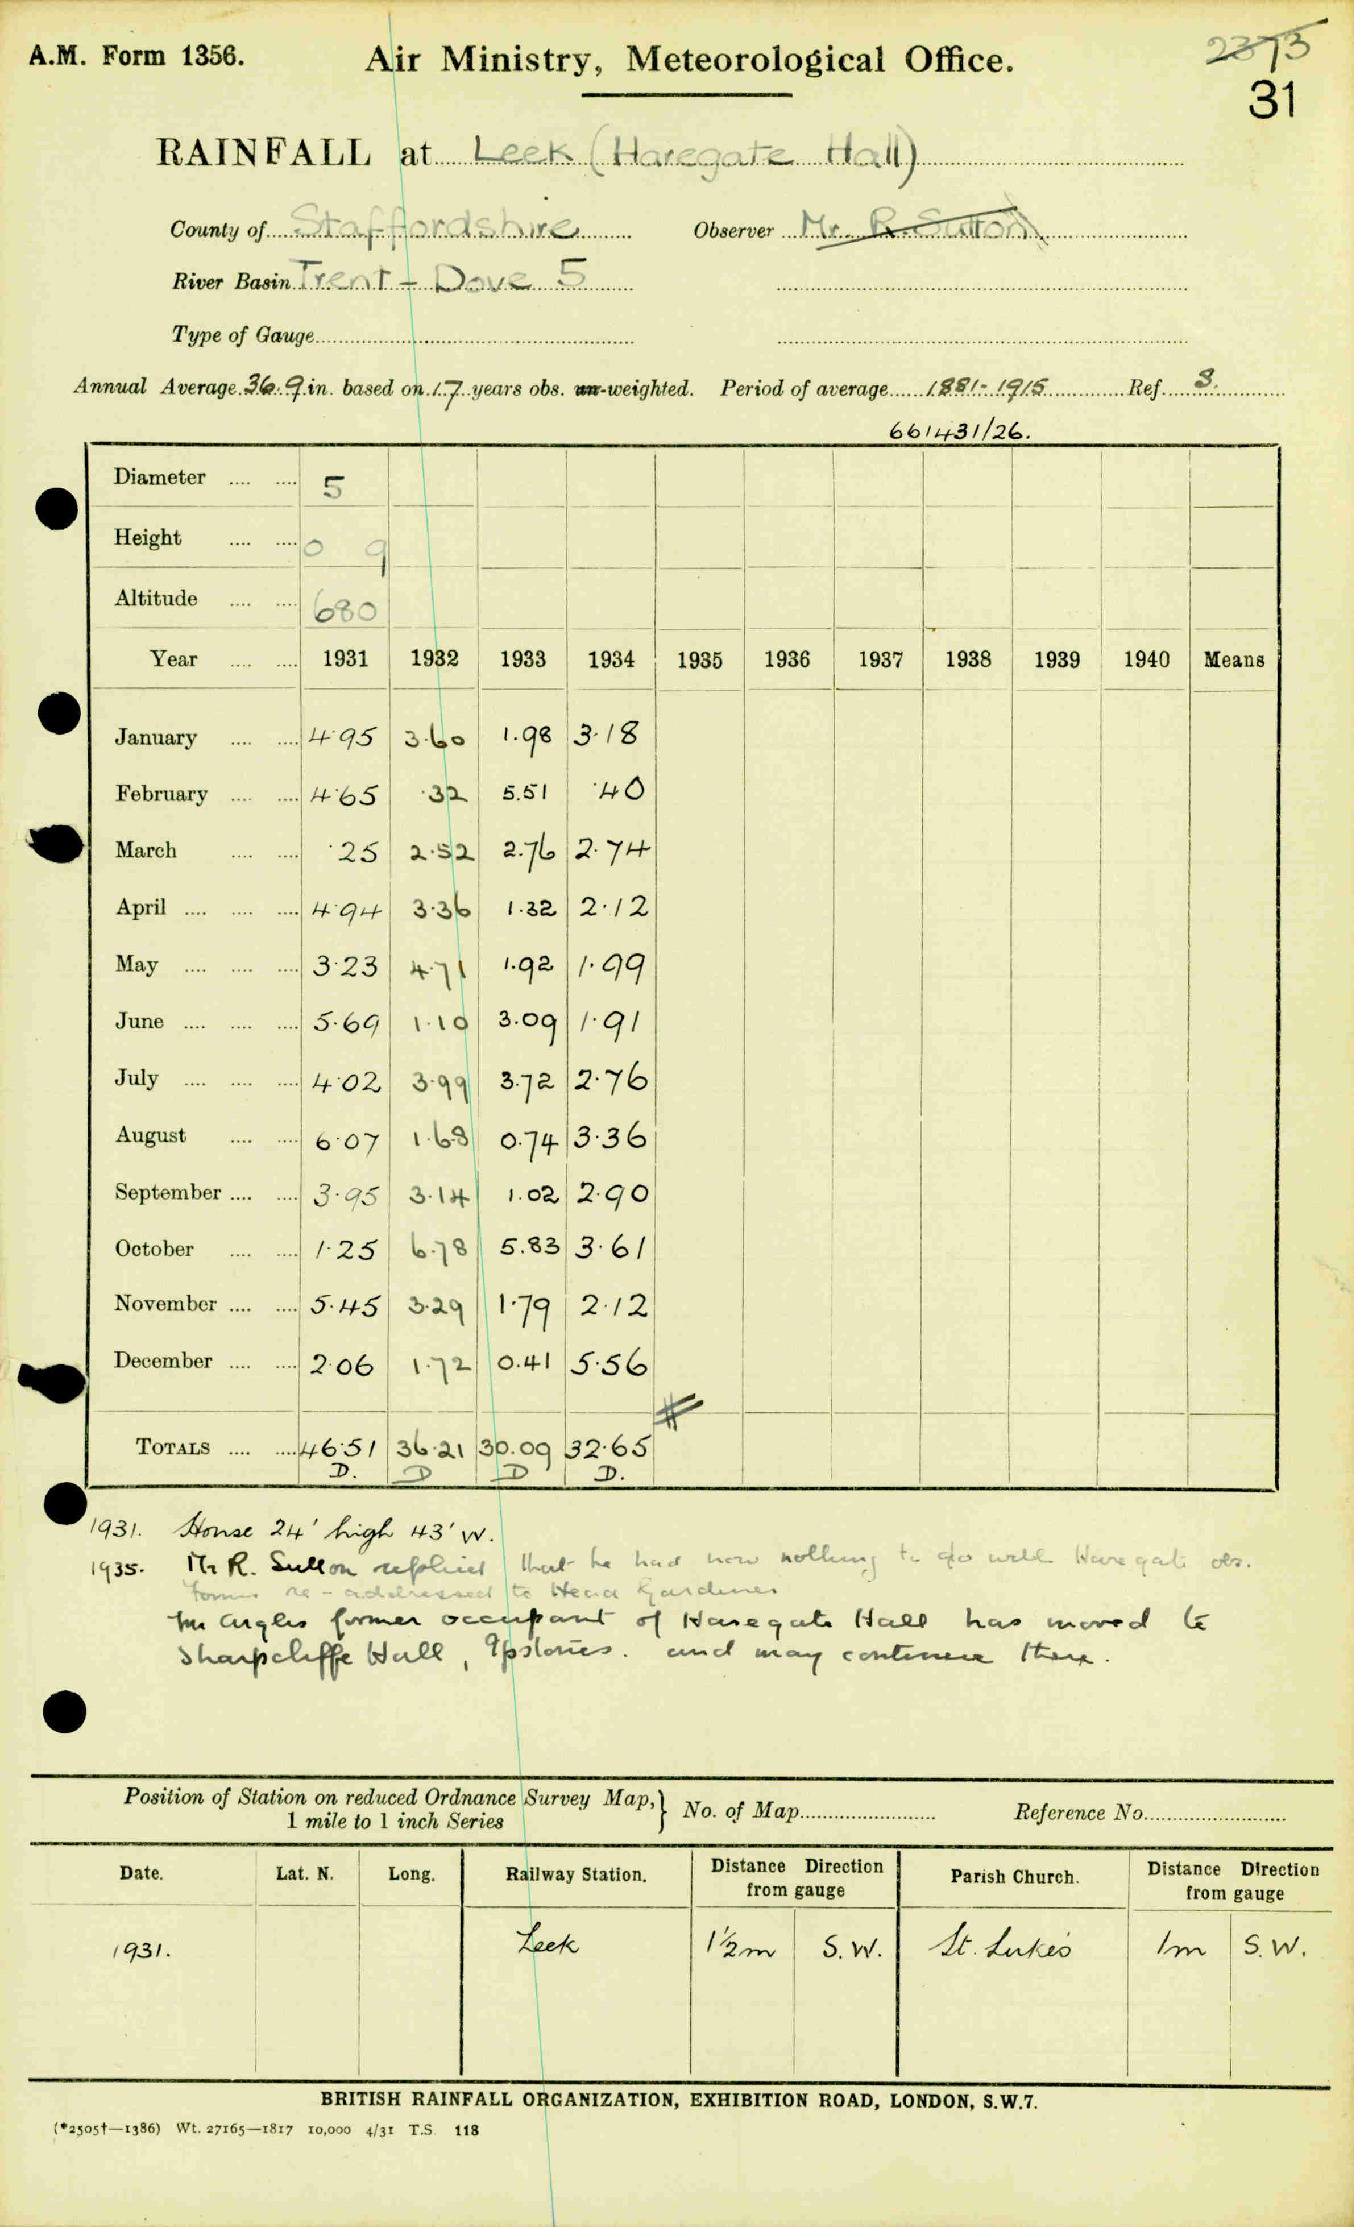 A.M. Form 1356. Air Ministry, Meteorological Office. 2373
31
RAINFALL at Leek (Haregate Hall)
County of Staffordshire Observer Mr. R. Sutton
River Basin Trent - Dove 5
Type of Gauge
Annual Average 36.9 in. based on 17 years obs. un-weighted. Period of average 1881-1915 Ref. S.
661431/26.
Diameter .... .... 5
Height .... .... 0 9
Altitude .... .... 680
Year .... .... 1931 1932 1933 1934 1935 1936 1937 1938 1939 1940 Means
January .... .... 4.95 3.60 1.98 3.18
February .... .... 4.65 .32 5.51 .40
March .... .... .25 2.52 2.76 2.74
April .... .... .... 4.94 3.36 1.32 2.12
May .... .... .... 3.23 4.71 1.92 1.99
June .... .... .... 5.69 1.10 3.09 1.91
July .... .... .... 4.02 3.99 3.72 2.76
August .... .... 6.07 1.68 0.74 3.36
September .... .... 3.95 3.14 1.02 2.90
October .... .... 1.25 6.78 5.83 3.61
November .... .... 5.45 3.29 1.79 2.12
December .... .... 2.06 1.72 0.41 5.56
TOTALS .... .... 46.51 36.21 30.09 32.65
D. D D D.
1931. House 24' high 43' W.
1935. Mr R. Sutton replied that he had now nothing to do with Haregate obs.
Forms re-addressed to Head Gardener
former occupant of Haregate Hall has moved to
Sharpcliffe Hall, Ipstones. and may continue there.
Position of Station on reduced Ordnance Survey Map, } No. of Map Reference No.
1 mile to 1 inch Series
Date. Lat. N. Long. Railway Station. Distance Direction from gauge Parish Church. Distance Direction from gauge
1931. Leek 1½m S.W. St. Luke's 1m S.W.
BRITISH RAINFALL ORGANIZATION, EXHIBITION ROAD, LONDON, S.W.7.
(*2505†—1386) Wt. 27165—1817 10,000 4/31 T.S. 118